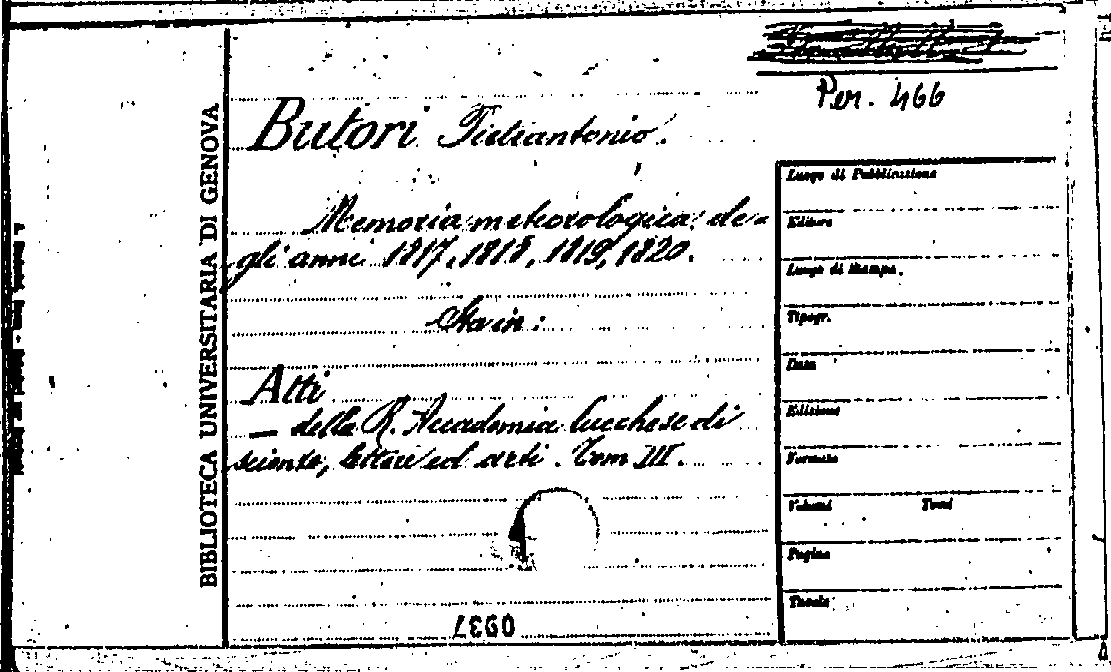 Per. 466
Butori Pietrantonio.
Memoria meteorologica de=
gli anni 1817, 1818, 1819, 1820.
Sta in:
Atti
— della R. Accademia lucchese di
scienze, lettere ed arti. Tom III.
0937
BIBLIOTECA UNIVERSITARIA DI GENOVA
Luogo di Pubblicazione
Editore
Luogo di stampa.
Tipogr.
Data
Edizione
Formato
Volumi Tomi
Pagine
Tavole